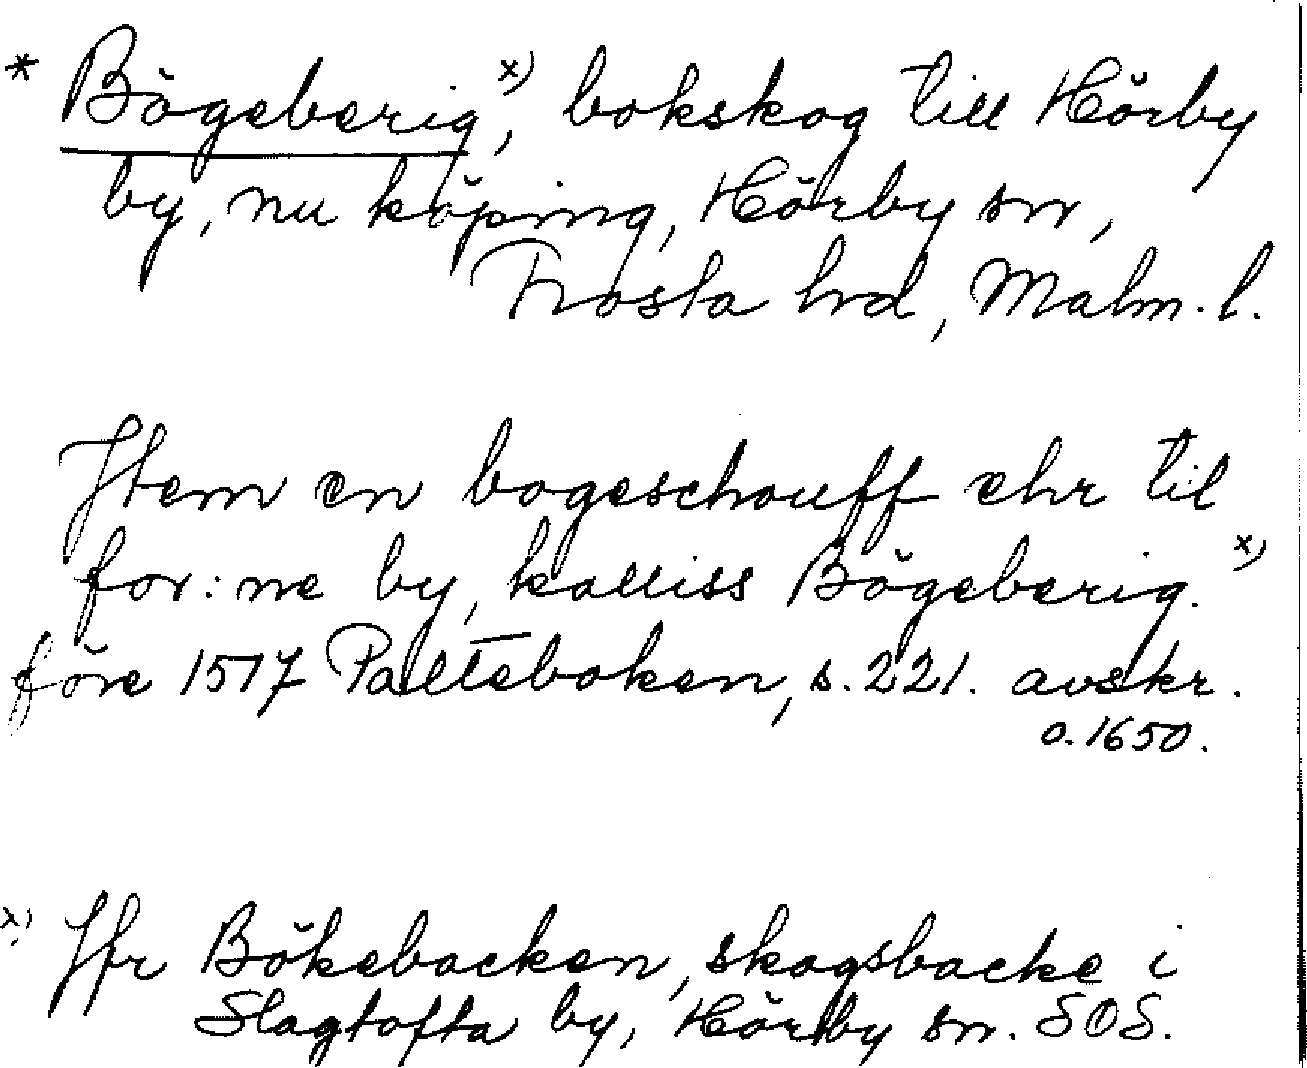 * Bögeberig x), bokskog till Hörby
by, nu köping, Hörby sn,
Frosta hrd, Malm. l.
Jtem en bogeschouff ehr til
for: ne by, kalliss Bögeberig. x)
före 1517 Palteboken, s. 221. avskr.
o. 1650.
x) Jfr Bökebacken, skogsbacke i
Slagtofta by, Hörby sn. SOS.